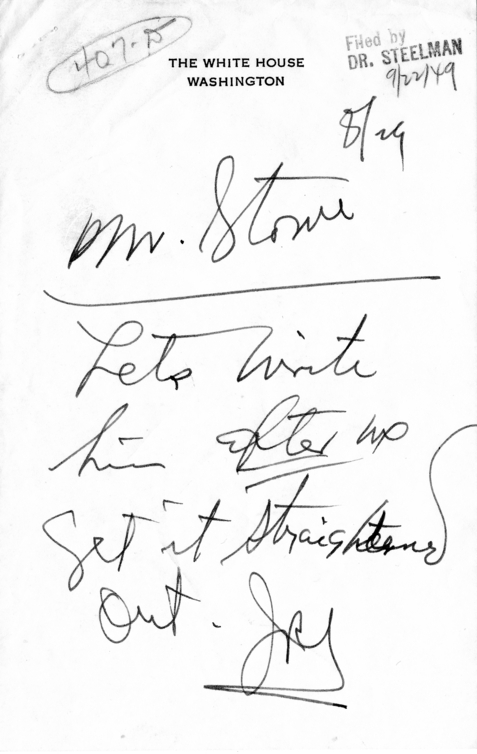 407-D
THE WHITE HOUSE
WASHINGTON
Filed by
DR. STEELMAN
9/22/49
8/29
Mr. Stowe
Lets write
him after we
get it straightened
out. JRS